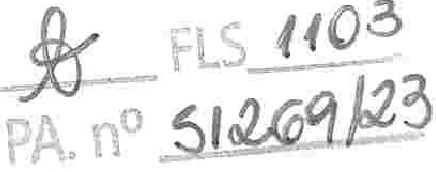 FLS 1103
PA. nº 51269/23